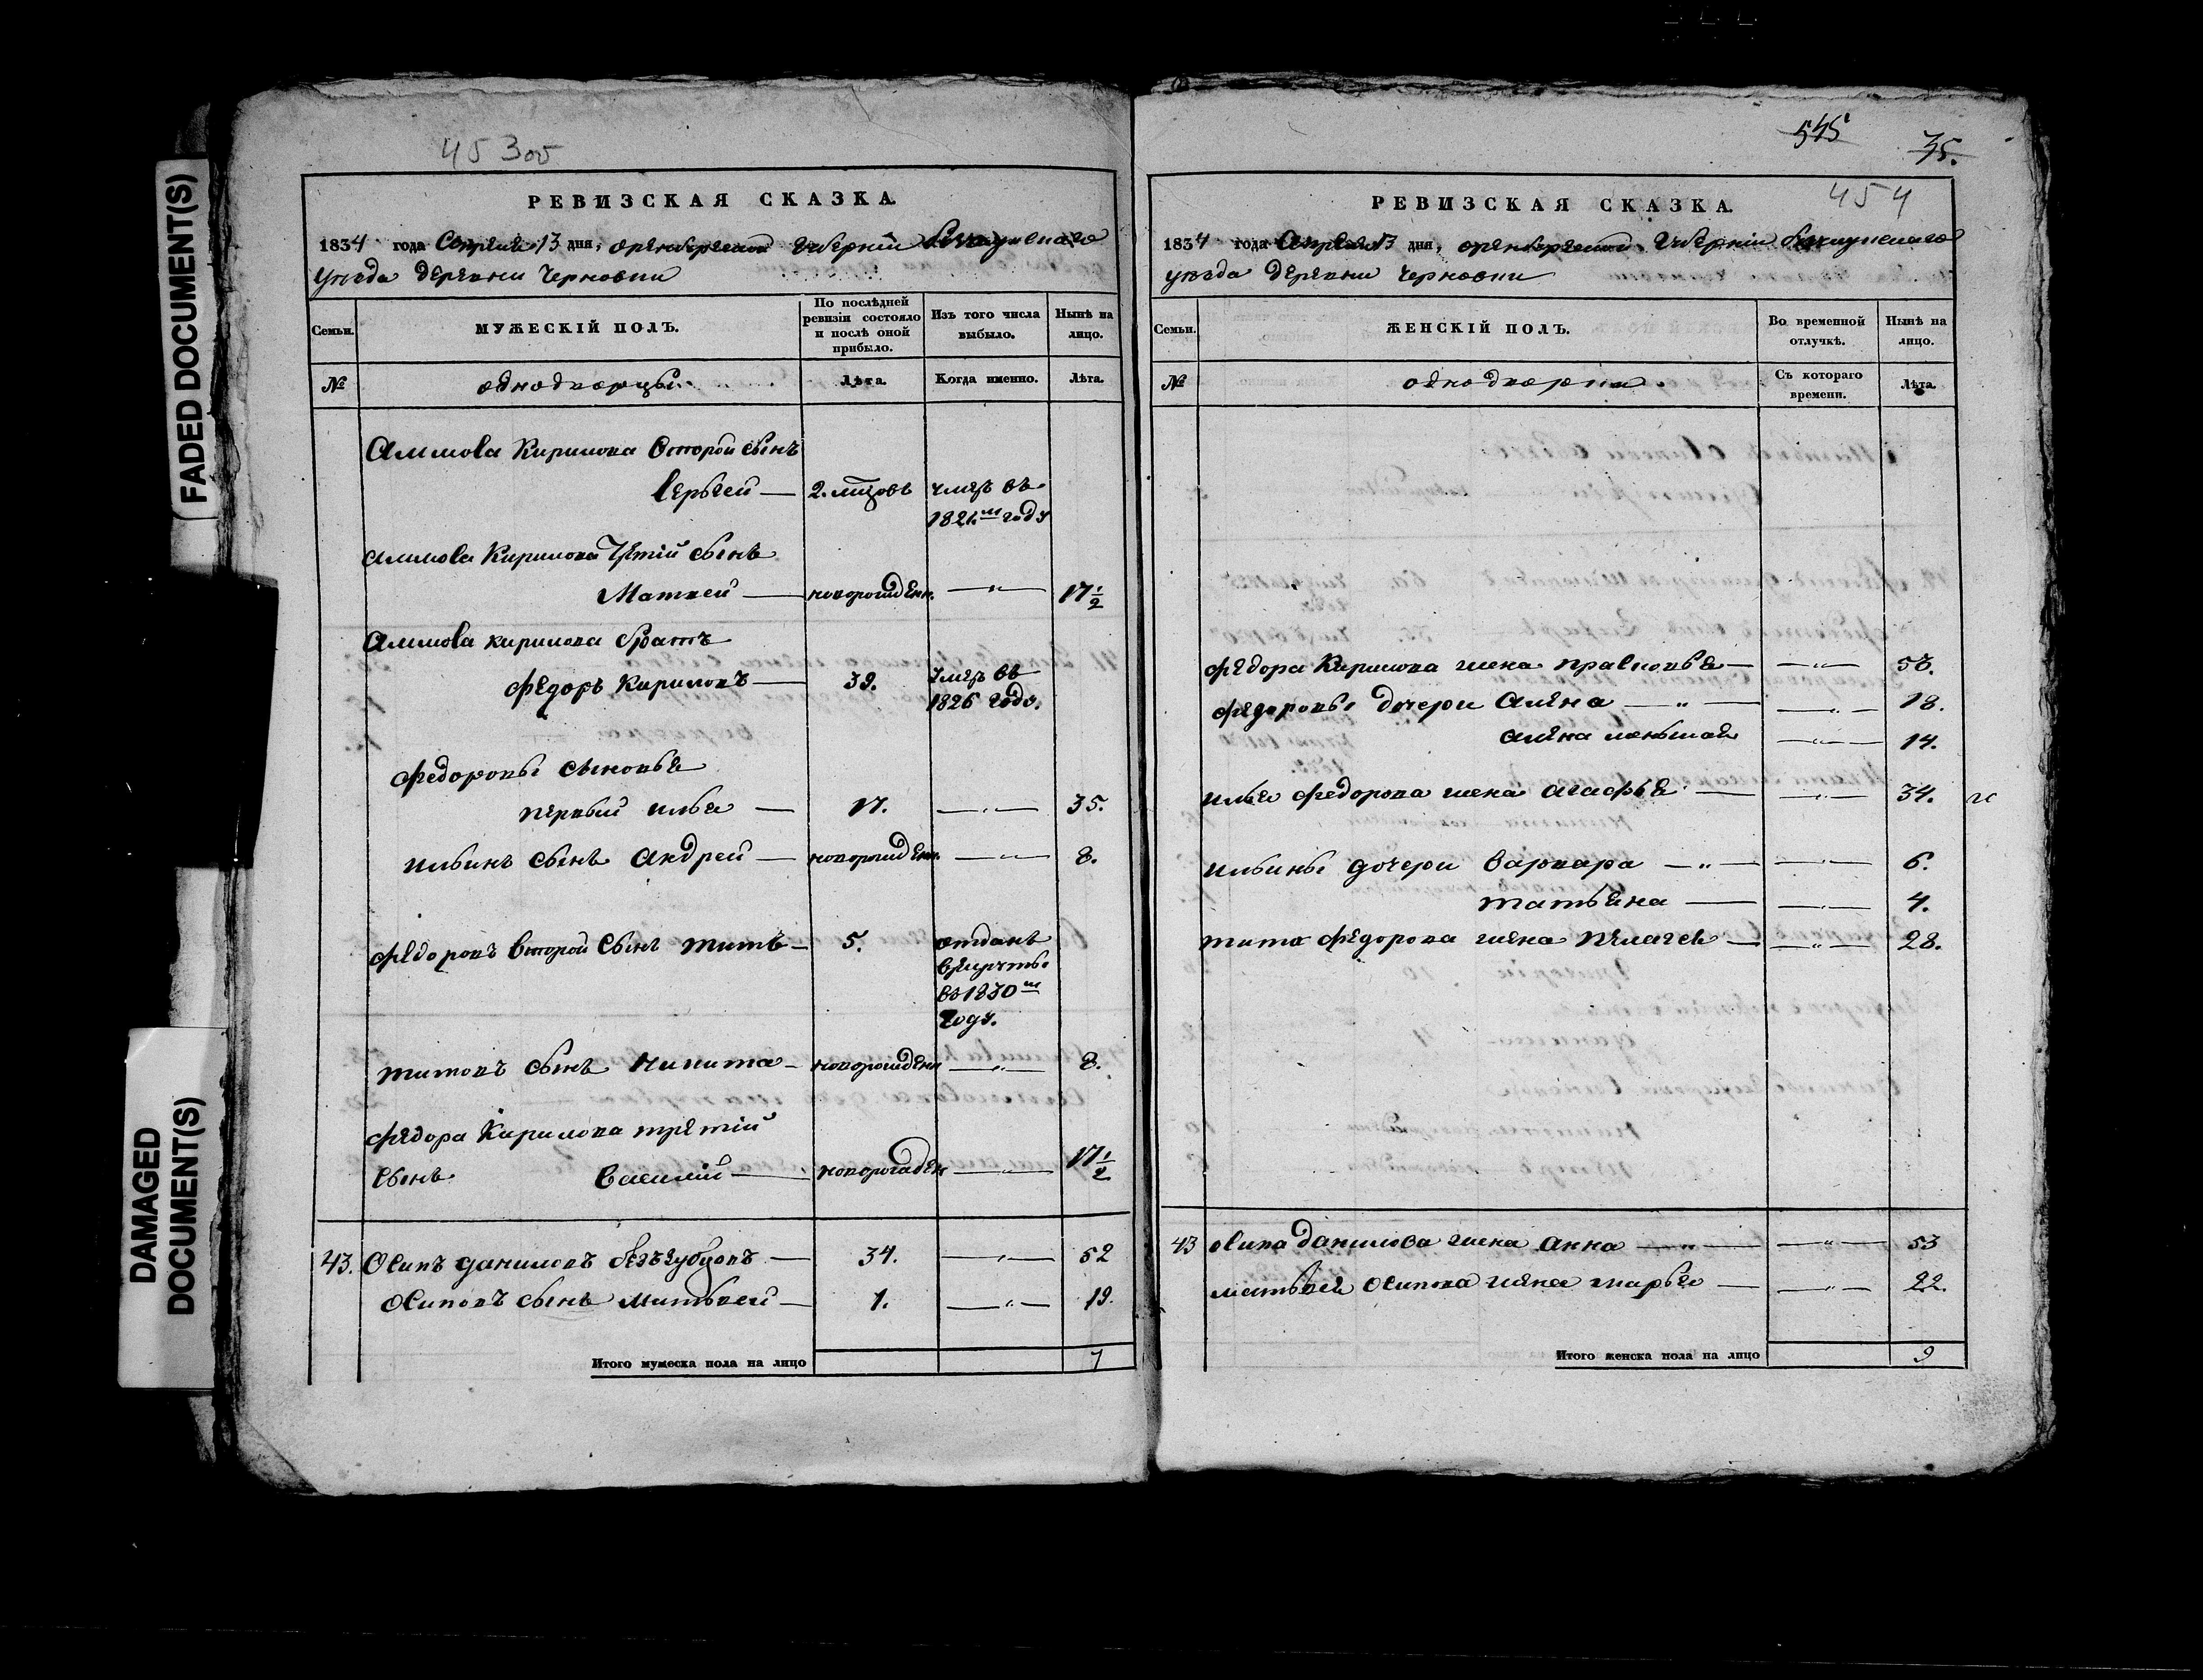 FADED DOCUMENT(S)
DAMAGED
DOCUMENT(S)
45 3об
РЕВИЗСКАЯ СКАЗКА.
1834 года Апреля 13 дня, оренбургской губернии Бузулускаго
уезда деревни Черновки
Семьи.
МУЖЕСКІЙ ПОЛЪ.
По послѣдней
ревизіи состояло
и послѣ оной
прибыло.
Изъ того числа
выбыло.
Нынѣ на
лицо.
№
однодворцы
Лѣта.
Когда именно.
Лѣта.
Кирилова второй сынъ
Сергей — 2. умеръ въ
1821м году
Кирилова третій сынъ
Матвей — новорожденн. — " — 17 1/2
Кирилова братъ
Федоръ Кириловъ — 39. умеръ въ
1826 году.
Федоровы сыновья
первый илья — 17. — " — 35.
ильинъ сынъ андрей — новорожденн. — " — 8.
Федоровъ второй сынъ титъ — 5. отданъ
в рекруты
въ 1830м
году.
титовъ сынъ никита — новорожденн — " — 8.
Федора Кирилова третій
сынъ Василій — новорожден — " — 17 1/2
43. Осипъ даниловъ беззубцовъ — 34. — " — 52
Осиповъ сынъ матвей — 1. — " — 19.
Итого мужеска пола на лицо 7
545
35.
454
РЕВИЗСКАЯ СКАЗКА.
1834 года Апреля 13 дня, оренбургской губерніи бузулускаго
уезда деревни черновки
Семьи.
ЖЕНСКІЙ ПОЛЪ.
Во временной
отлучкѣ.
Нынѣ на
лицо.
№
однодворки.
Съ котораго
времени.
Лѣта.
Федора Кирилова жена прасковья — — " — 53.
Федоровы дочери алена — " — — " — 18.
алена меньшая — " — 14.
ильи федорова жена агафья — — " — 34.
ильины дочери варвара — " — — " — 6.
татьяна — — " — 4.
тита федорова жена пелагея — — " — 28.
43 осипа данилова жена анна — " — — " — 53
матвея осипова жена марья — — " — 22.
Итого женска пола на лицо 9